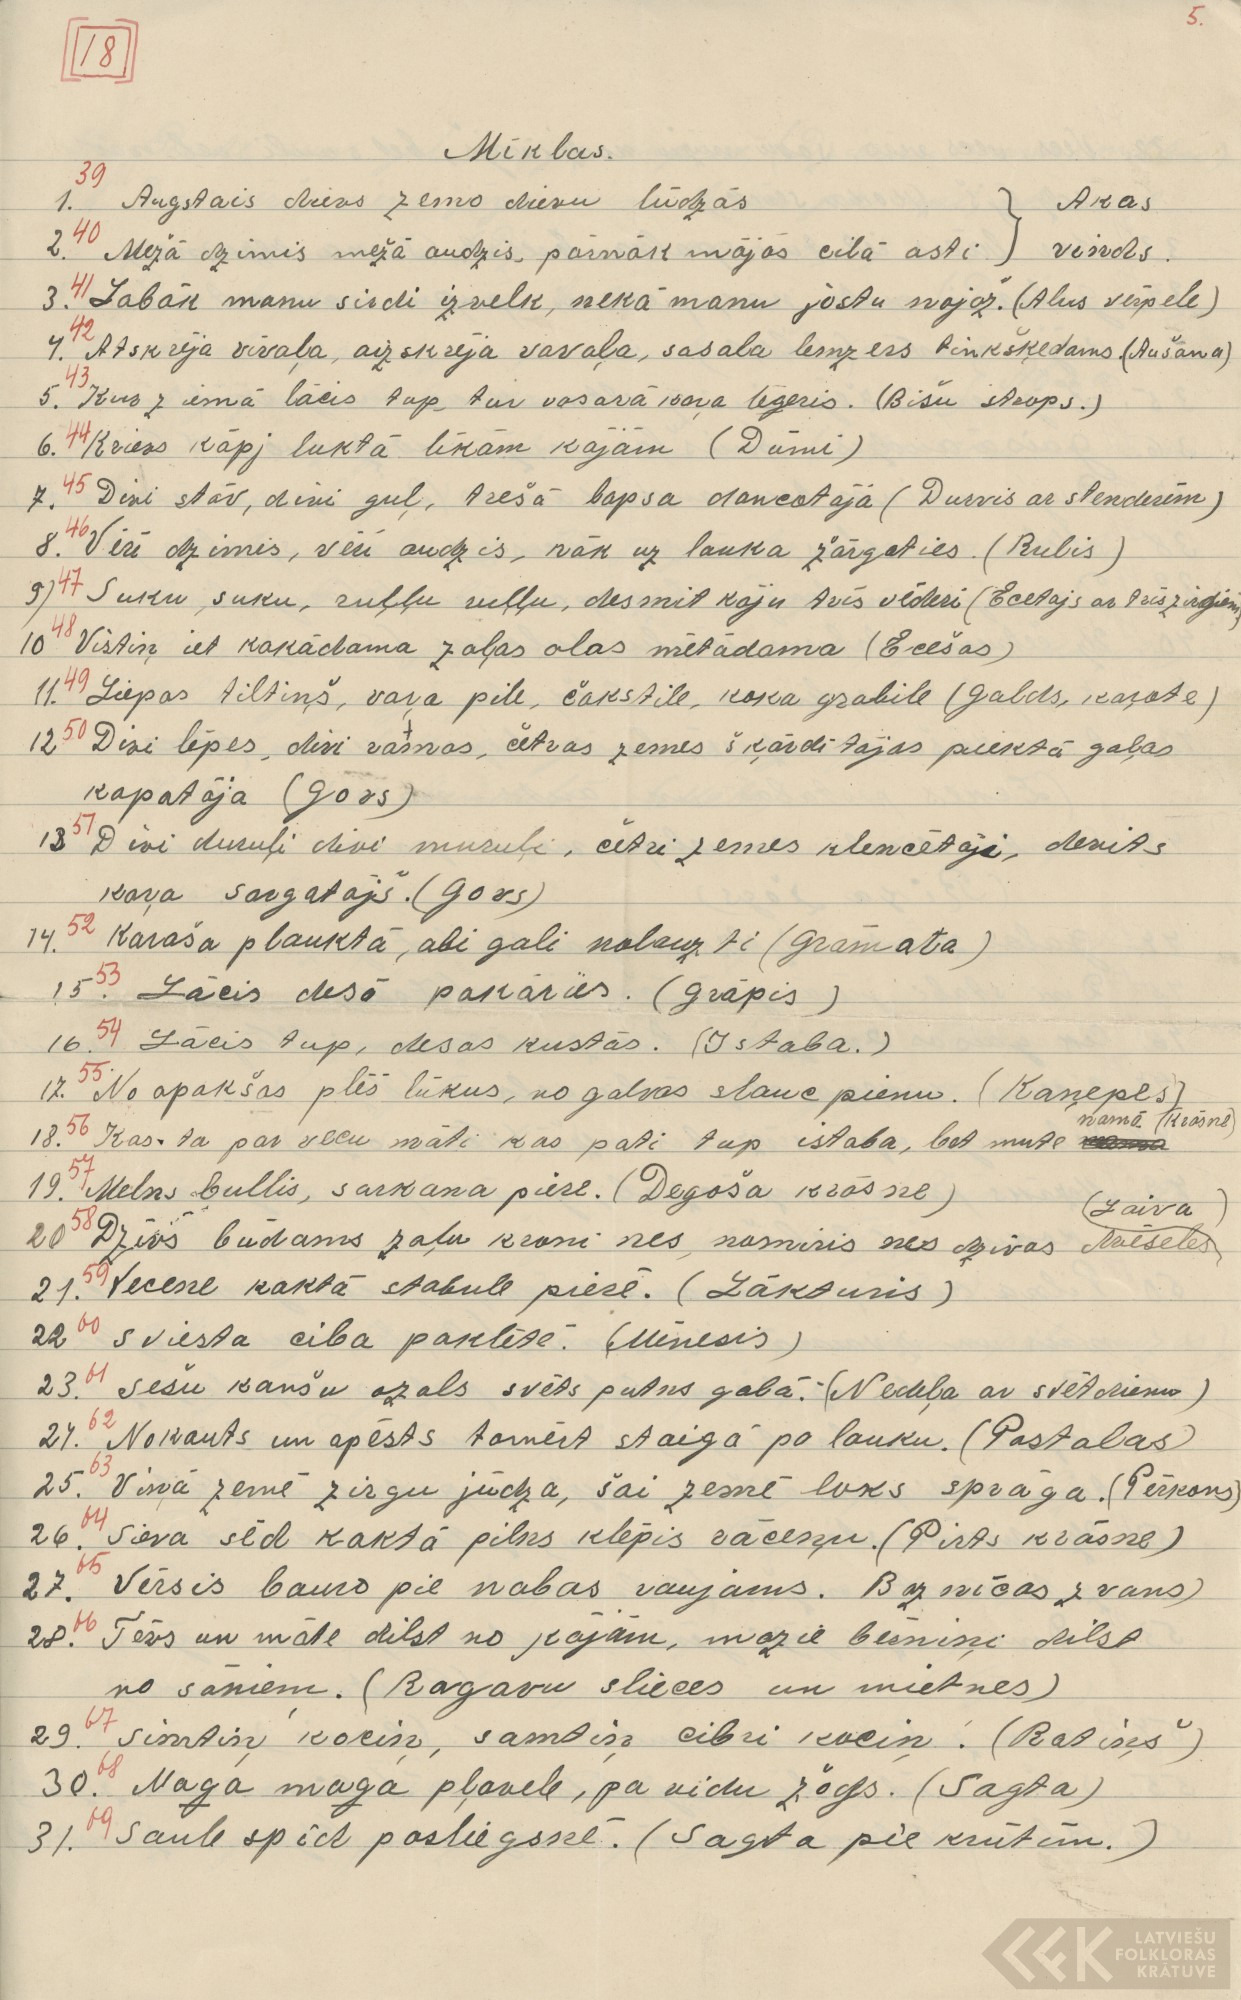 5.
18
Mīklas.
1. 39 Augstais dievs zemo dievu lūdzās } Akas
2. 40 Mežā dzimis mežā audzis, pārnāk mājās cilā asti } vinds.
3. 41 Labāk manu sirdi izvelk, nekā manu jostu nojož. (Alus vērpele)
4. 42 Atskrēja vīvaļa, aizskrēja vavaļa, sasala lemzers tinkšķedams. (Aušana)
5. 43 Kur ziemā lācis tup, tur vasarā kaŗa lēģeris. (Bišu strops.)
6. 44 Krievs kāpj luktā līkām kājām (Dūmi)
7. 45 Divi stāv, divi guļ, trešā lapsa dancotājā (Durvis ar stenderēm)
8. 46 Vērī dzimis, vērī audzis, nāk uz lauka žārgaties. (Rulis)
9) 47 Suku suku, ruļļu ruļļu, desmit kāju trīs vēderi (Ecētājs ar trīs zirgiem)
10 48 Vistiņ iet kakādama zaļas olas mētādama (Ecēšas)
11. 49 Liepas tiltiņš, vaŗa pile, čakstile, koka grabile (Galds, kaŗote)
12 50 Divi lēpes, divi vamas, četras zemes šķārdītājas piektā gaļas
kapatāja (Govs)
13 51 Divi duruļi divi muruļi, četri zemes klencētāji, devīts
kaŗa sargatājš. (Govs)
14. 52 Karaša plauktā, abi gali nolauzti (Grāmata)
15. 53 Lācis desā pakāries. (Grāpis)
16. 54 Lācis tup, desas kustās. (Istaba.)
17. 55 No apakšas plēš lūkus, no galvas slauc pienu. (Kaņepes)
18. 56 Kas ta par vecu māti kas pati tup istaba, bet mute namā (Krāsne)
19. 57 Melns bullis, sarkana piere. (Degoša krāsne)
(Laiva)
20 58 Dzīvs būdams zaļu kroni nes, nomiris nes dzīvas dvēseles
21. 59 Vecene kaktā stabule pierē. (Lākturis)
22 60 Sviesta ciba paklētē. (Mēnesis)
23. 61 Sešu kanšu ozols svēts putns galā. (Nedēļa ar svētdienu)
24. 62 Nokauts un apēsts tomērt staigā pa lauku. (Pastalas)
25. 63 Viņā zemē zirgu jūdza, šai zemē loks sprāga. (Pērkons)
26. 64 Sieva sēd kaktā pilns klēpis rāceņu. (Pirts krāsne)
27. 65 Vērsis bauro pie nabas raujams. Baznīcas zvans)
28. 66 Tēvs un māte dilst no kājām, mazie bērniņi dilst
no sāniem. (Ragavu slieces un mietnes)
29. 67 Simtiņ kociņ, samtiņ cibri kociņ. (Ratiņš)
30. 68 Maga maga pļavele, pa vidu žogs. (Sagta)
31. 69 Saule spīd pasliegsnē. (Sagta pie krūtīm.)
LATVIEŠU
FOLKLORAS
KRĀTUVE